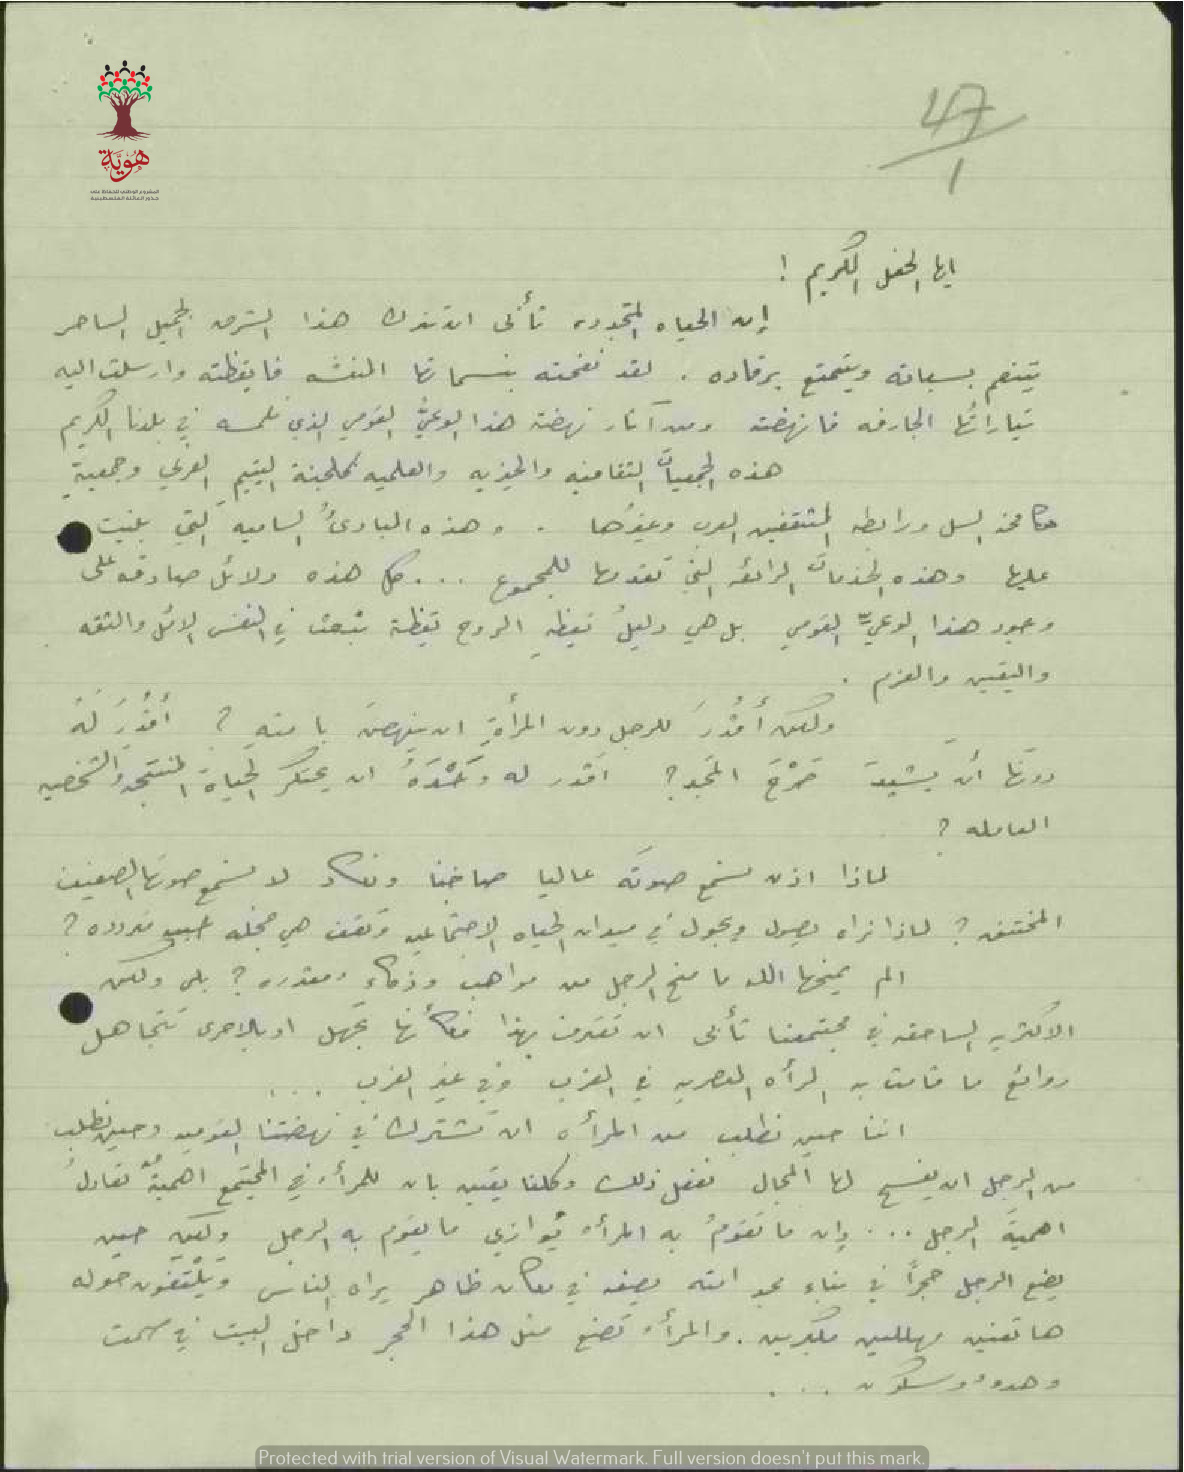 47
1
هُوِيَّة
المشروع الوطني للحفاظ على
جذور العائلة الفلسطينية
ايها الحفل الكريم !
إن الحياه المتجدده تأبى ان تترك هذا الشرق الجميل الساحر
يتنعم بسباته ويتمتع برقاده . لقد نفحته بنسماتها المنعشه فايقظته وارسلت اليه
تياراتُها الجارفه فانهضته ومن آثار نهضته هذا الوعيُ القومي الذي نلمسه في بلدنا الكريم
هذه الجمعيات الثقافيه والخيريه والعلميه كلجنة اليتيم العربي وجمعيةِ
مكافحة السل ورابطه المثقفين العرب وغيرُها . وهذه المبادئُ الساميه التي بنيت
عليها وهذه الخدمات الرائعه التي تقدمها للمجموع ... كل هذه دلائل صادقه على
وجود هذا الوعيِّ القومي بل هي دليلُ يقظهِ الروح يقظة تبعث في النفس الامل والثقه
واليقين والعزم .
ولكن أَقُدِّرَ للرجل دون المرأةِ ان ينهضَ بامتهِ ؟ أَقُدِّرَ لَهُ
دونَها أن يشيدَ صَرْحَ المجد ؟ اقدر له وَحْدَهُ ان يحتكر الحياة المنتجه والشخصيه
العامله ؟
لماذا اذن نسمع صوتَه عاليا صاخبا ونكاد لا نسمع صوتَها الضعيف
المختنق ؟ لماذا نراه يصول ويجول في ميدان الحياه الاجتماعيه وتقف هي خجله متردده ؟
الم يمنحها الله ما منح الرجل من مواهب وذكاءٍ ومقدره ؟ بلى ولكن
الاكثريه الساحقه في مجتمعنا تأبى ان تعترف بهذا فكأنها تجهل او بالاحرى تتجاهل
روائع ما قامت به المرأه العصريه في الغرب وفي غير الغرب ....
اننا حين نطلب من المرأه ان تشترك في نهضتنا القوميه وحين نطلب
من الرجل ان يفسح لها المجال نفعل ذلك وكلنا يقين بان للمرأه في المجتمع اهميةٌ تعادلُ
اهميةَ الرجل ... وإن ما تقومُ به المرأه يُوازي ما يقوم به الرجل ولكن حين
يضع الرجل حجراً في بناء مجد امته يضعه في مكان ظاهر يراه الناس وَيَلْتَفون حوله
هاتفين مهللين مكبرين . والمرأه تضع مثل هذا الحجر داخل البيت في صمت
وهدوء وسكون ...
Protected with trial version of Visual Watermark. Full version doesn't put this mark.